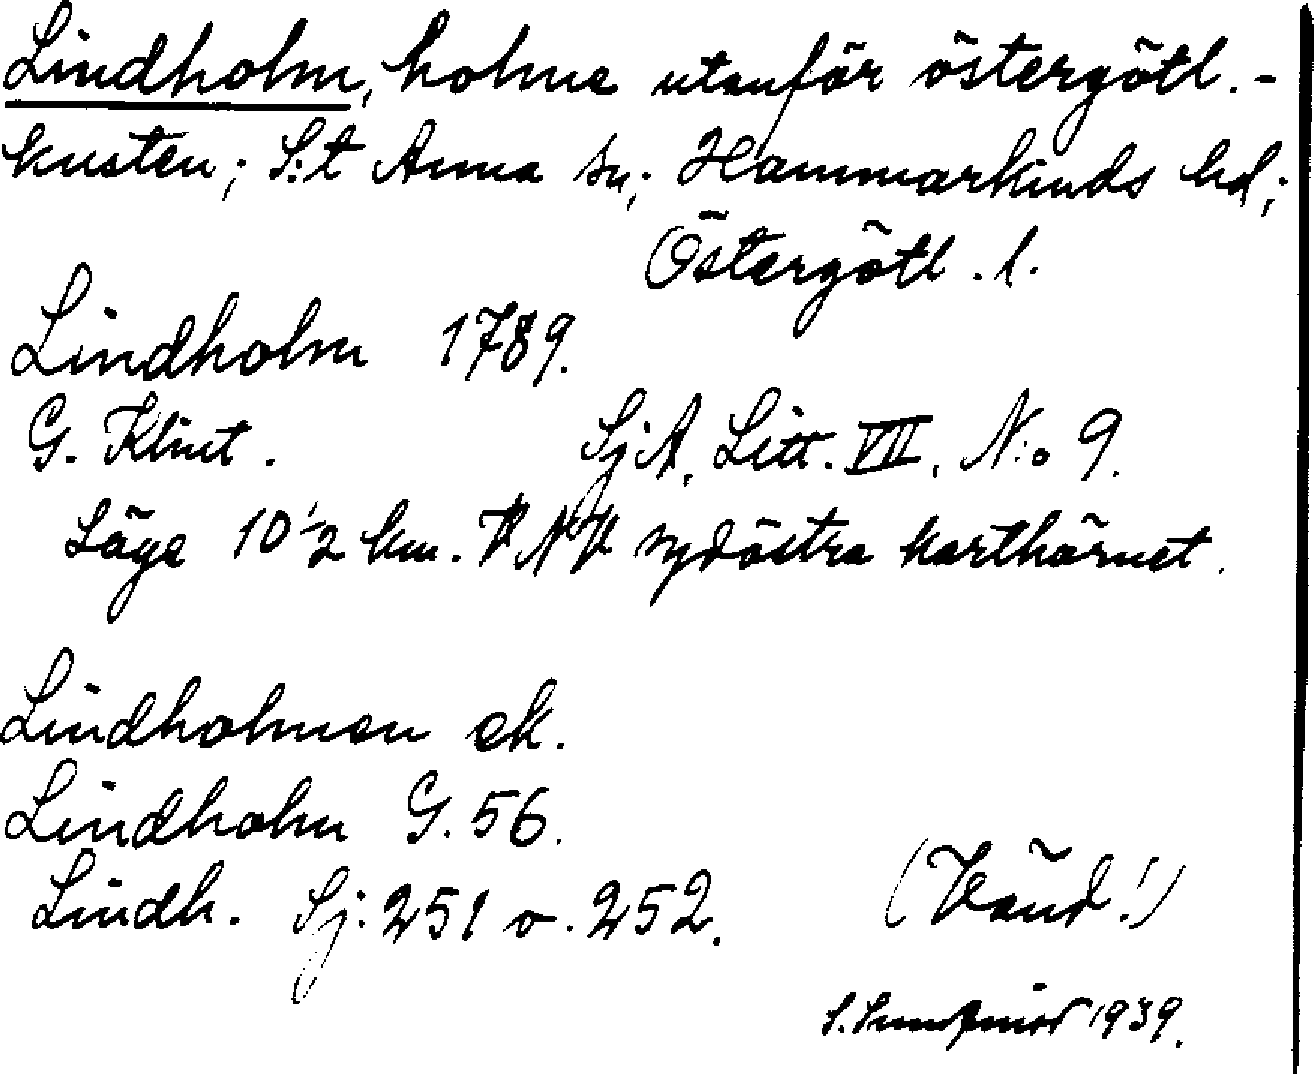 Lindholm, holme utanför östergötl.-
kusten; S:t Anna sn; Hammarkinds hd;
Östergötl. l.
Lindholm 1789.
G. Klint. SjA, Litt. VII, N:o 9.
Läge 10 1/2 km. VNV sydöstra karthörnet.
Lindholmen ek.
Lindholm G. 56.
Lindh. Sj: 251 o. 252.
(Vänd!)
S. 1939.